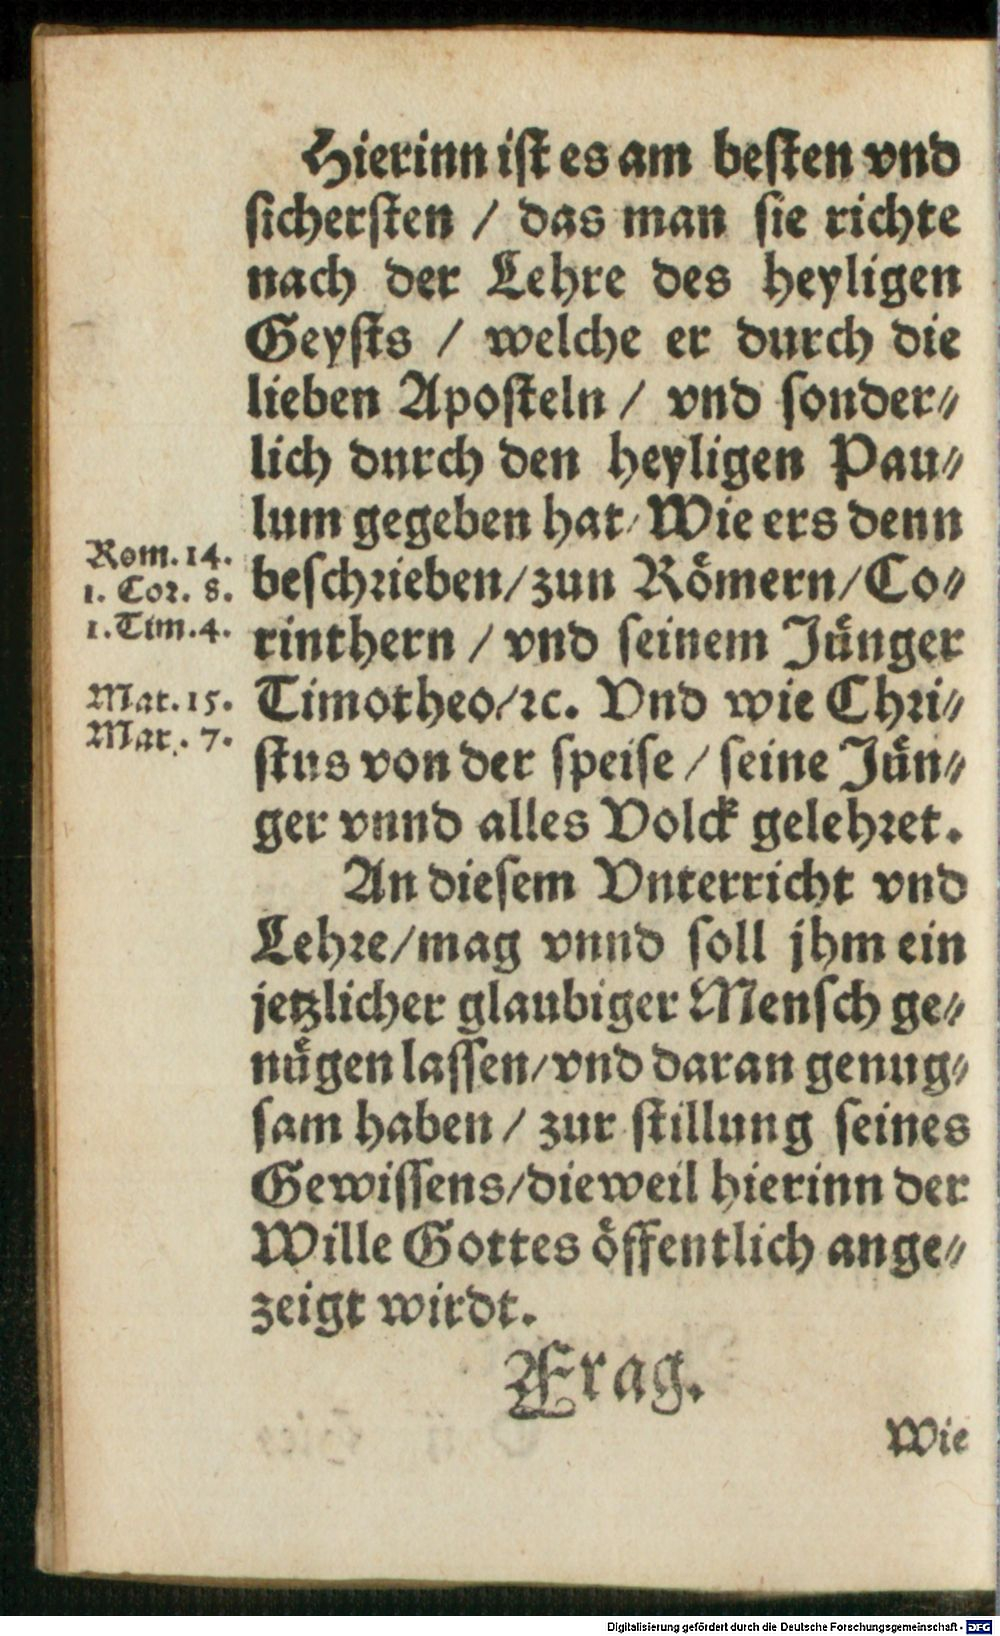 Hierinn ist es am besten vnd
sichersten / das man sie richte
nach der Lehre des heyligen
Geysts / welche er durch die
lieben Aposteln / vnd sonder⸗
lich durch den heyligen Pau⸗
lum gegeben hat / Wie ers denn
Rom. 14.
1. Cor. 8.
1. Tim. 4.
Mat. 15.
Mar. 7.
beschrieben / zun Römern / Co⸗
rinthern / vnd seinem Jünger
Timotheo / ꝛc. Vnd wie Chri⸗
stus von der speise / seine Jün⸗
ger vnnd alles Volck gelehret.
An diesem Vnterricht vnd
Lehre / mag vnnd soll jhm ein
jetzlicher glaubiger Mensch ge⸗
nügen lassen / vnd daran genug⸗
sam haben / zur stillung seines
Gewissens / dieweil hierinn der
Wille Gottes öffentlich ange⸗
zeigt wirdt.
Frag.
Wie
Digitalisierung gefördert durch die Deutsche Forschungsgemeinschaft - DFG